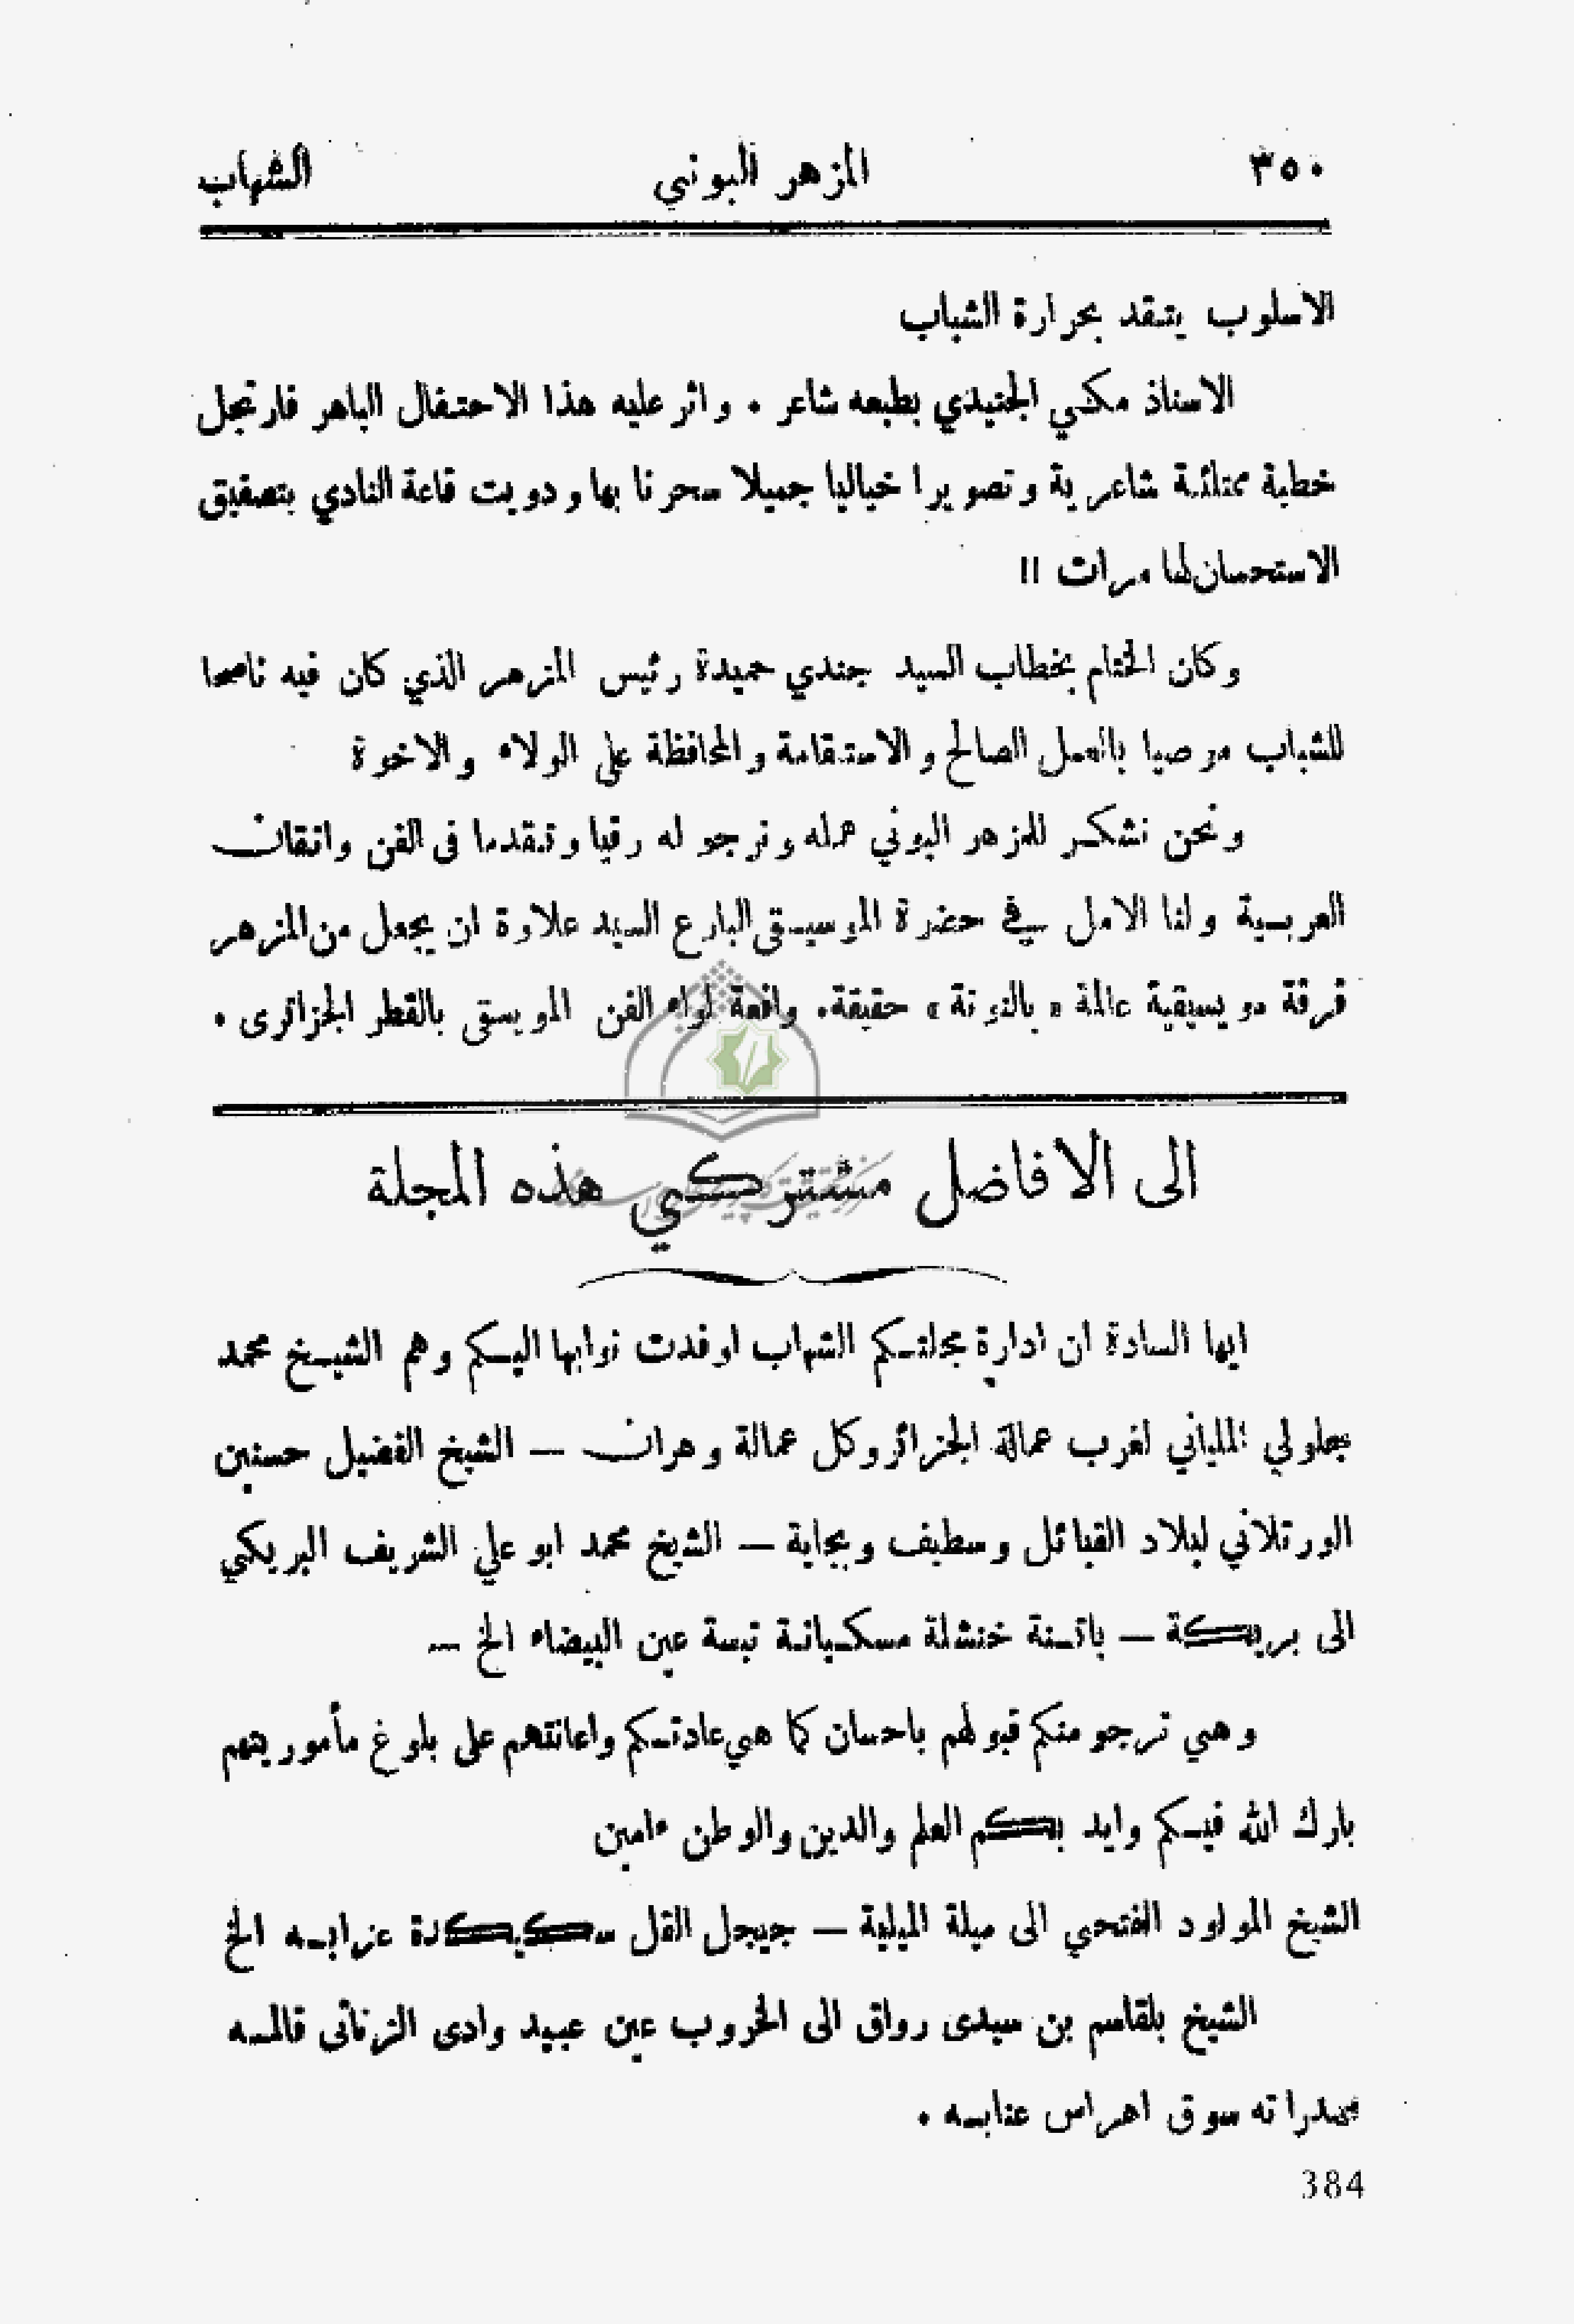 ٣٥٠ المزهر البوني الشهاب
الاسلوب يتقد بحرارة الشباب
الاستاذ مكي الجنيدي بطبعه شاعر . واثر عليه هذا الاحتفال الباهر فارتجل
خطبة ممتلئة شاعرية وتصويرا خياليا جميلا سحرنا بها ودوبت قاعة النادي بتصفيق
الاستحسان لها مرات !!
وكان الختام بخطاب السيد جندي حميدة رئيس المزهر الذي كان فيه ناصحا
للشباب مرصيا بالعمل الصالح والاستقامة والمحافظة على الولاء والاخوة
ونحن نشكر للمزهر البوني عمله ونرجو له رقيا وتقدما فى الفن واتقان
العربية ولنا الامل في حضرة الموسيقى البارع السيد علاوة ان يجعل من المزهر
فرقة مويسيقية عالمة « بالنوتة » حقيقة. رافعة لواء الفن المويسقى بالقطر الجزائرى .
الى الافاضل مشتركي هذه المجلة
ايها السادة ان ادارة مجلتكم الشهاب اوفدت نوابها اليكم وهم الشيخ محمد
بهلولي الملياني لغرب عمالة الجزائر وكل عمالة وهران — الشيخ الفضيل حسنين
الورتلاني لبلاد القبائل وسطيف وبجاية — الشيخ محمد ابو علي الشريف البريكي
الى بريكة — باتنة خنشلة مسكيانة تبسة عين البيضاء الخ —
وهي ترجو منكم قبولهم باحسان كما هي عادتكم واعانتهم على بلوغ مأموريتهم
بارك الله فيكم وايد بكم العلم والدين والوطن ءامين
الشيخ المولود الفتحي الى ميلة الميلية — جيجل القل سكيكدة عزابه الخ
الشيخ بلقاسم بن سيدى رواق الى الخروب عين عبيد وادى الزناتى قالمه
سدراته سوق اهراس عنابه .
384